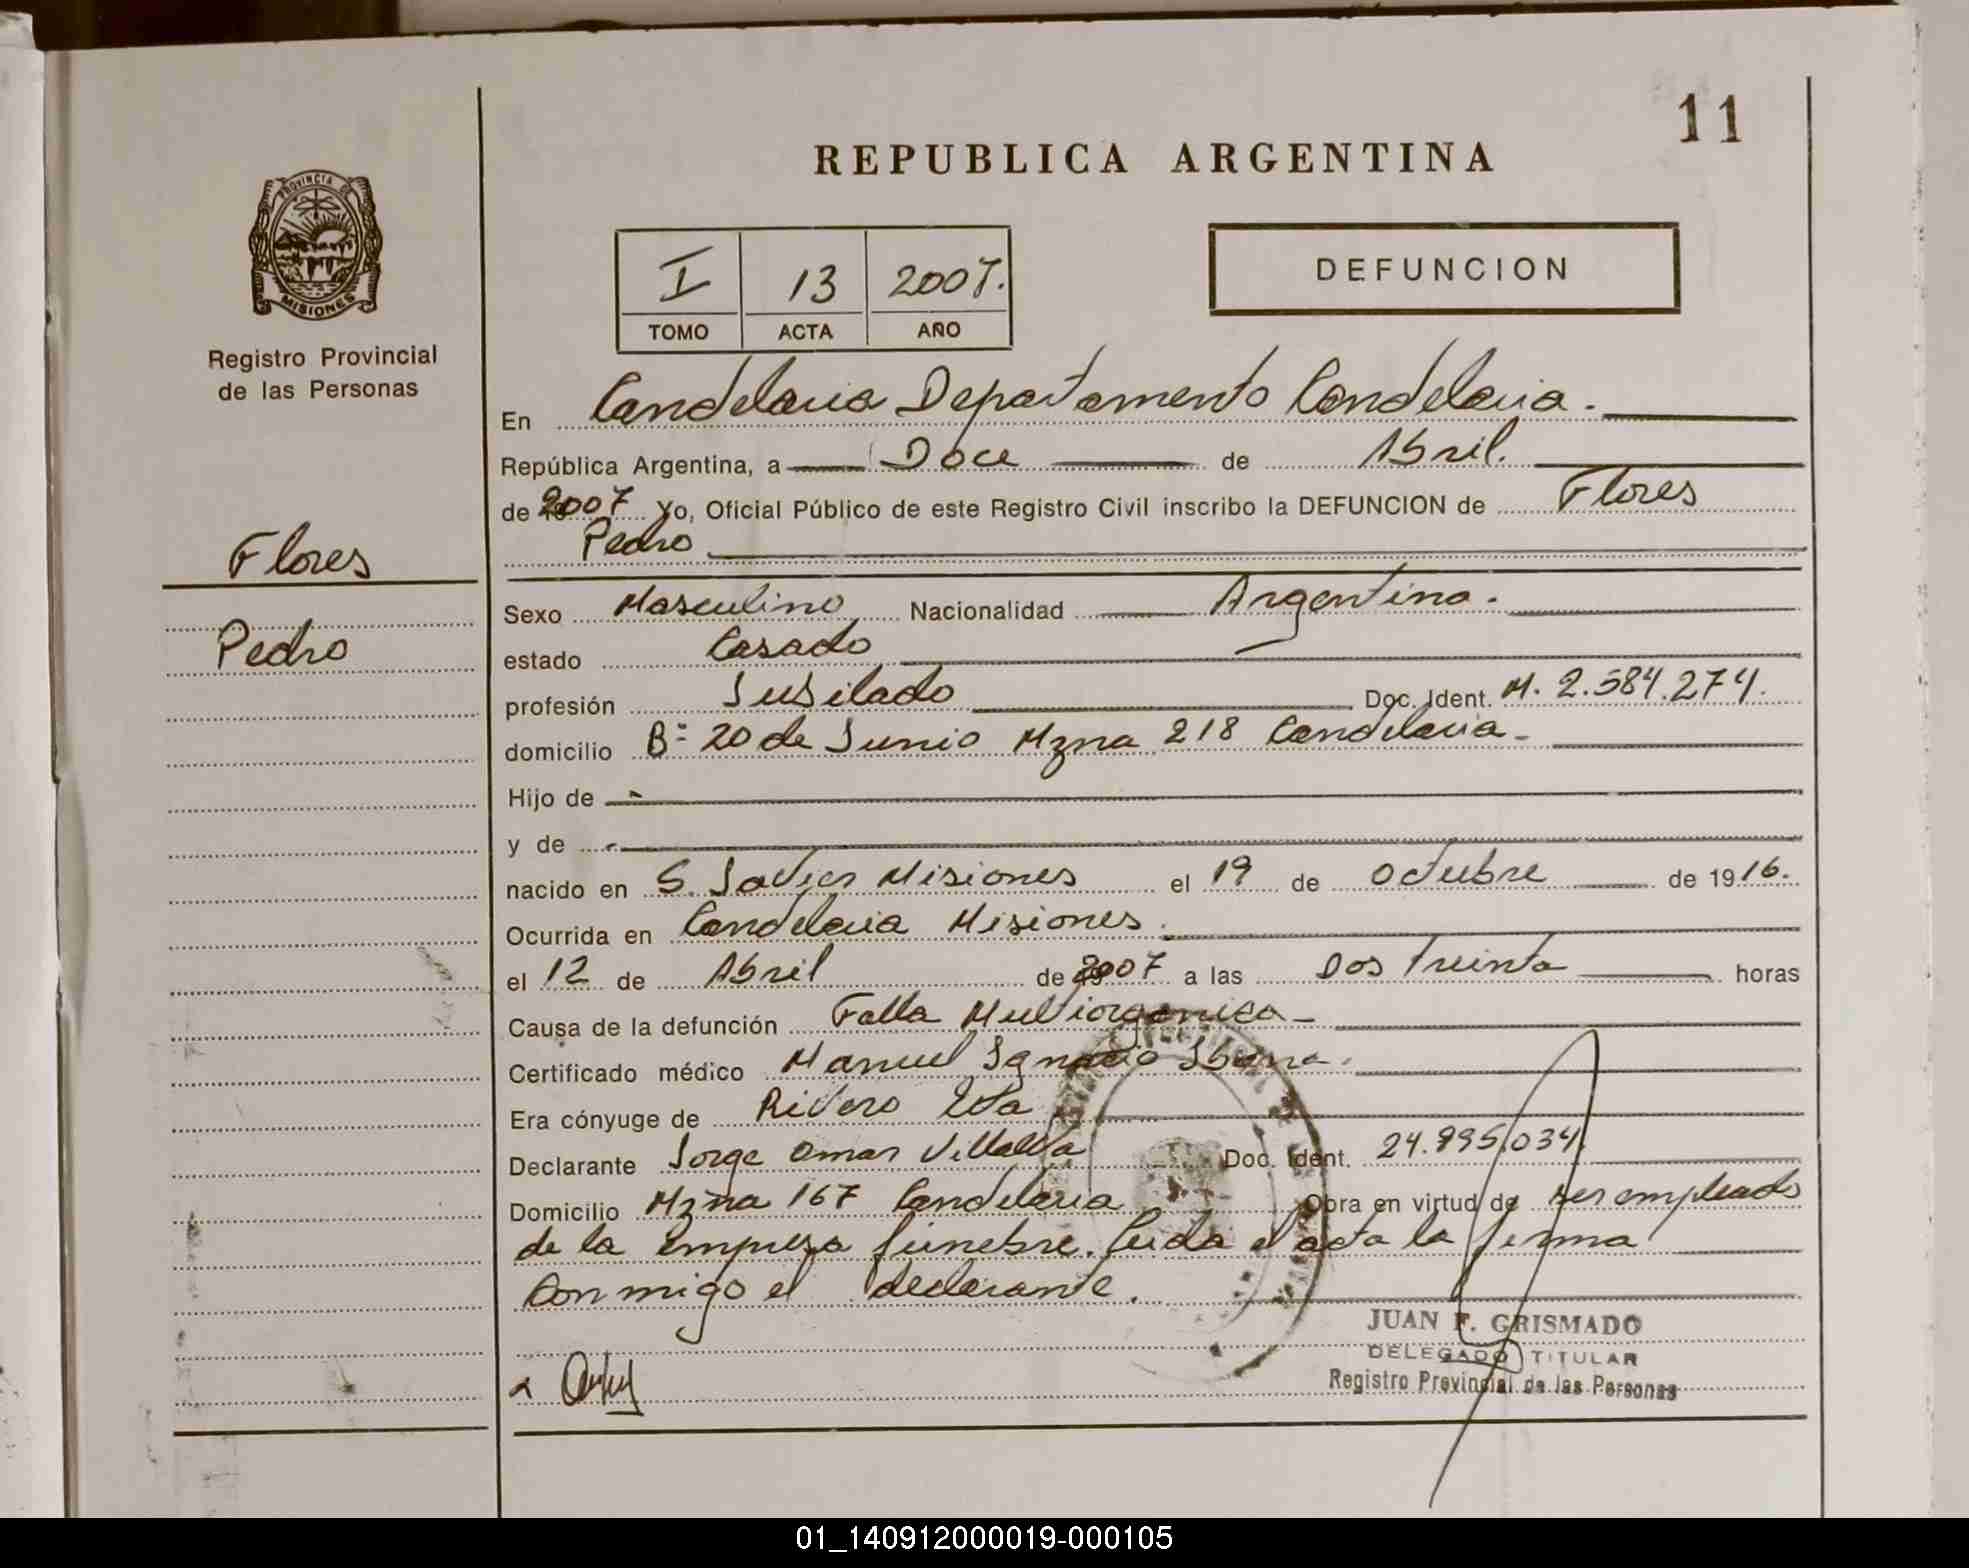 11
REPUBLICA ARGENTINA
PROVINCIA DE
MISIONES
Registro Provincial
de las Personas
I 13 2007.
TOMO ACTA AÑO
DEFUNCION
En Candelaria Departamento Candelaria.
República Argentina, a Doce de Abril.
de 2007 Yo, Oficial Público de este Registro Civil inscribo la DEFUNCION de Flores
Pedro
Flores
Pedro
Sexo Masculino Nacionalidad Argentina.
estado Casado
profesión Jubilado Doc. Ident. M. 2.584.274.
domicilio Bº 20 de Junio Mzna 218 Candelaria-
Hijo de
y de
nacido en S. Javier Misiones el 19 de Octubre de 1916.
Ocurrida en Candelaria Misiones.
el 12 de Abril de 2007 a las Dos Treinta horas
Causa de la defunción Falla Multiorganica-
Certificado médico Manuel Ignacio
Era cónyuge de Rivero
Declarante Jorge Omar Villalba Doc. Ident. 24.995.034.
Domicilio Mzna 167 Candelaria Obra en virtud de ser empleado
de la empresa funebre. Leida el acta la firma
conmigo el declarante.
JUAN F. GRISMADO
DELEGADO TITULAR
Registro Provincial de las Personas
01_140912000019-000105